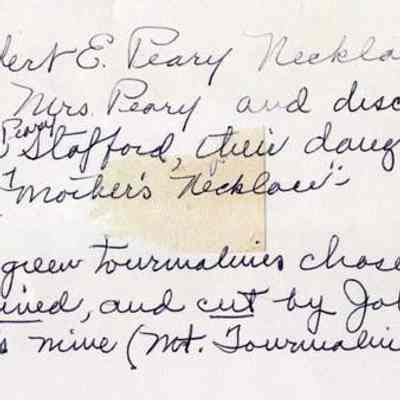 bert E. Peary Necklac
Mrs. Peary and disc
Peary
Stafford, their daug
"Mother's Necklace"-
green tourmalines chose
ined, and cut by Joh
s mine (Mt. Tourmalin